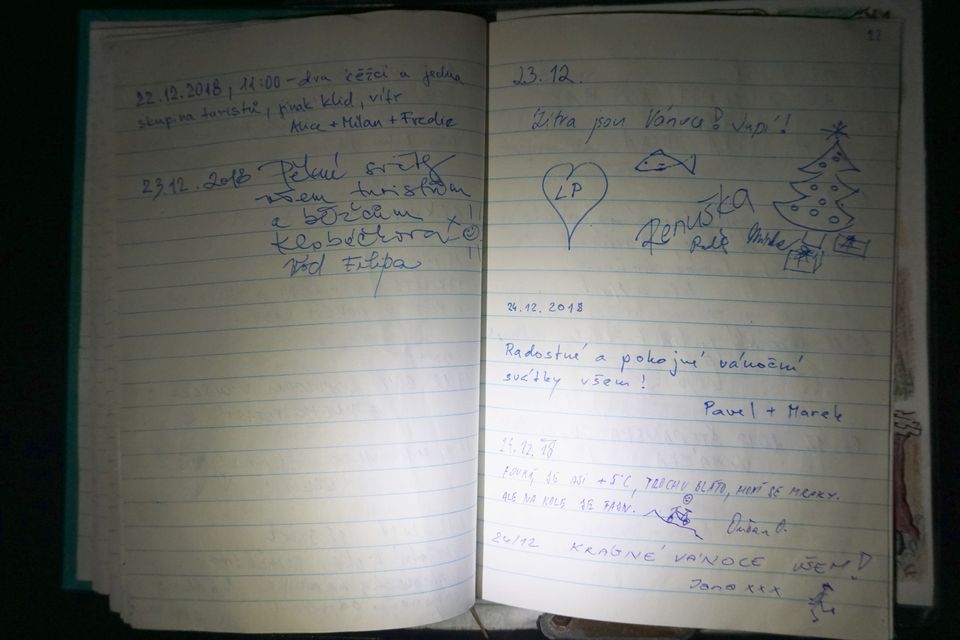 22.12.2018, 11:00 - dva běžci a jedna
skupina turistů, jinak klid, vítr
Alice + Milan + Fredie
23.12.2018 Pěkné svátky
všem turistům
a běžcům
Klobáčkova
Vod Filipa
22
23.12.
Zítra jsou Vánoce! Jupí!
LP
Renuška
Radš
Mirka
24.12.2018
Radostné a pokojné vánoční
svátky všem!
Pavel + Marek
24.12.18
FOUKÁ, JE ASI +5°C, TROCHU BLÁTO, HONÍ SE MRAKY.
ALE NA KOLE JE FAJN.
Dušan O.
24/12 KRÁSNÉ VÁNOCE VŠEM!
Jana xxx